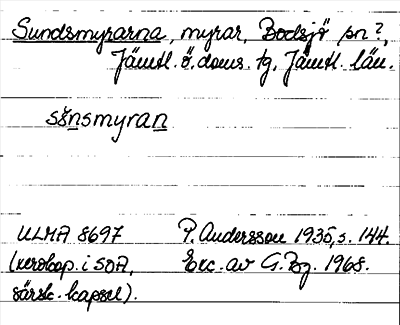 Sundsmyrarna, myrar, Bodsjö sn?,
Jämtl. ö. doms. tg, Jämtl. län.
sšn̲smyran̲
ULMA 8697 P. Andersson 1935, s. 144.
(xerokop. i SOA, Exc. av G. Bg. 1968.
särsk. kapsel).